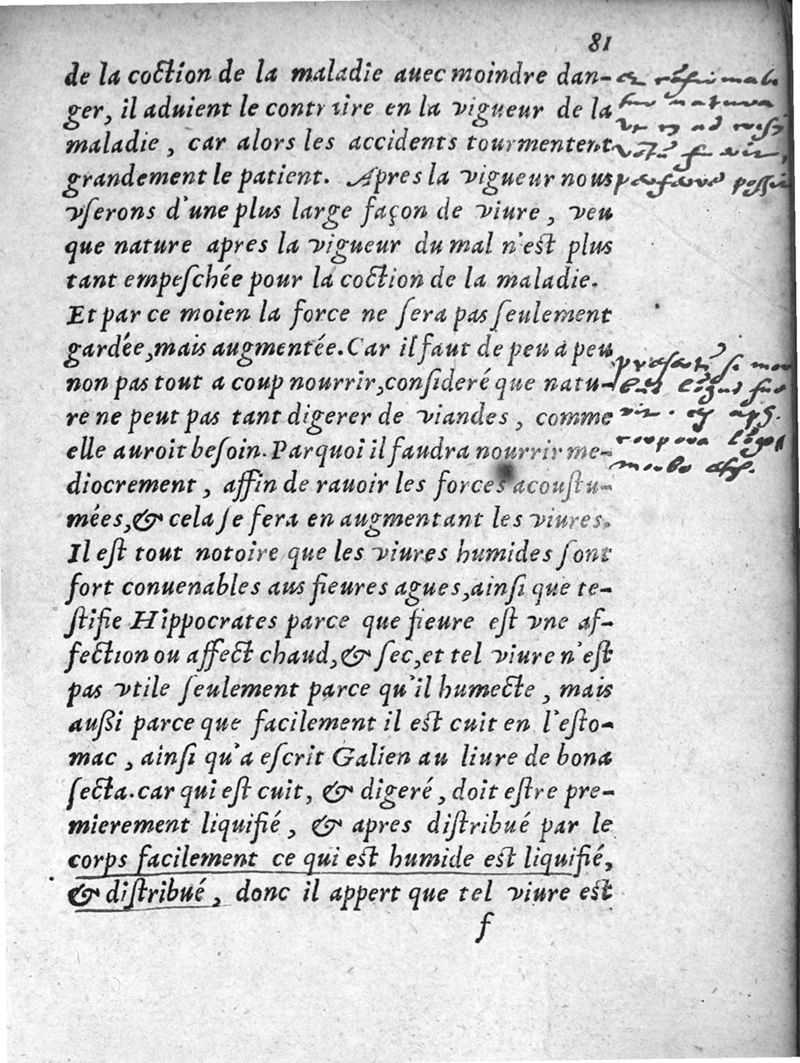 81
de la coction de la maladie auec moindre dan-
ger, il aduient le contraire en la vigueur de la
maladie, car alors les accidents tourmentent
grandement le patient. Apres la vigueur nous
vserons d'une plus large façon de viure, veu
que nature apres la vigueur du mal n'est plus
tant empeſchée pour la coction de la maladie.
Et par ce moien la force ne ſera pas ſeulement
gardée, mais augmentée. Car il faut de peu à peu
non pas tout a coup nourrir, conſideré que natu-
re ne peut pas tant digerer de viandes, comme
elle auroit beſoin. Parquoi il faudra nourrir me-
diocrement, affin de rauoir les forces acouſtu-
mées, & cela ſe fera en augmentant les viures.
Il eſt tout notoire que les viures humides ſont
fort conuenables aus fieures agues, ainſi que te-
ſtifie Hippocrates parce que fieure eſt vne af-
fection ou affect chaud, & ſec, et tel viure n'eſt
pas vtile ſeulement parce qu'il humecte, mais
außi parce que facilement il eſt cuit en l'eſto-
mac, ainſi qu'a eſcrit Galien au liure de bona
ſecta. car qui eſt cuit, & digeré, doit eſtre pre-
mierement liquifié, & apres diſtribué par le
corps facilement ce qui eſt humide eſt liquifié,
& diſtribué, donc il appert que tel viure eſt
f
natura